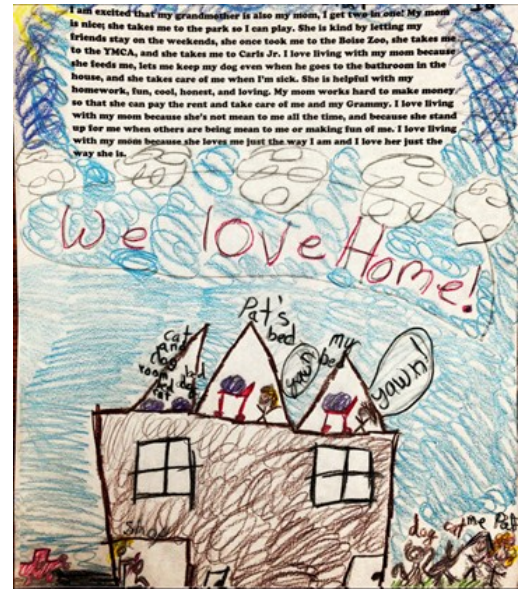 I am excited that my grandmother is also my mom, I get two in one! My mom
is nice; she takes me to the park so I can play. She is kind by letting my
friends stay on the weekends, she once took me to the Boise Zoo, she takes me
to the YMCA, and she takes me to Carls Jr. I love living with my mom because
she feeds me, lets me keep my dog even when he goes to the bathroom in the
house, and she takes care of me when I'm sick. She is helpful with my
homework, fun, cool, honest, and loving. My mom works hard to make money
so that she can pay the rent and take care of me and my Grammy. I love living
with my mom because she's not mean to me all the time, and because she stand
up for me when others are being mean to me or making fun of me. I love living
with my mom because she loves me just the way I am and I love her just the
way she is.
We love Home!
Pat's
bed
my
bed
cat
and
dog bed
room
yawn
yawn!
dog cat me Pat